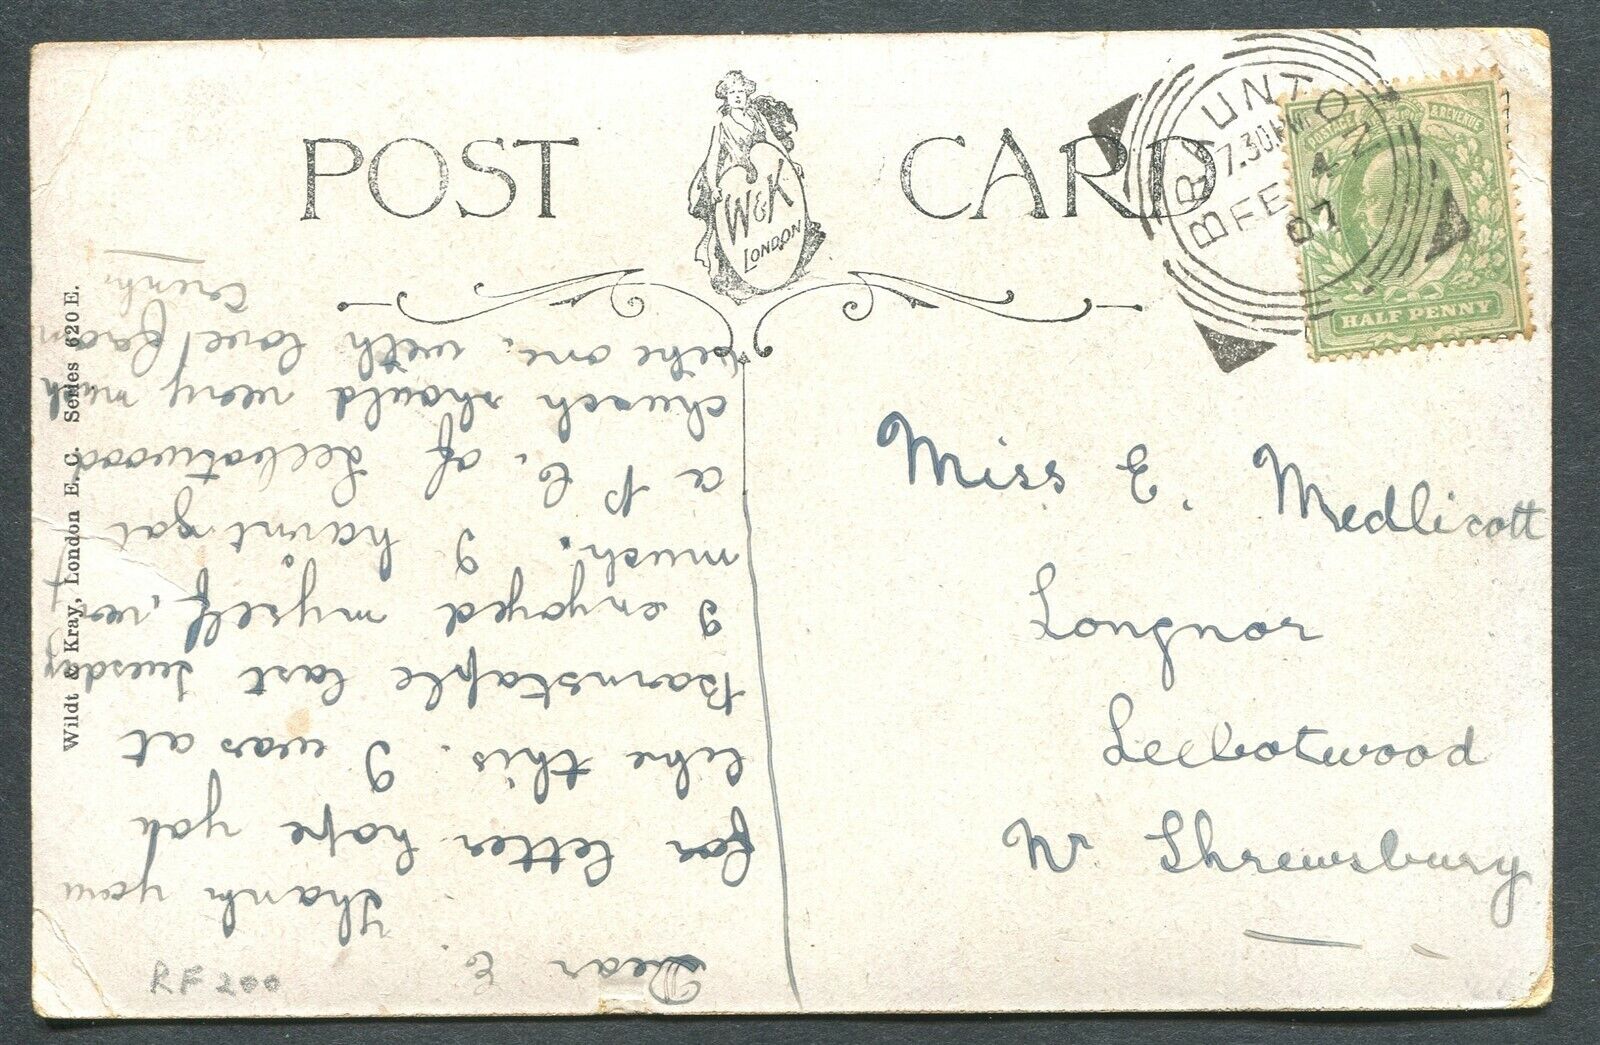 POST CARD
W & K
LONDON
BRAUNTON
7.30 PM
FE 4
07
POSTAGE & REVENUE
HALF PENNY
Miss E. Medlicott
Longnor
Leebotwood
Nr Shrewsbury
Dear E.
Thank you
for letter hope yah
like this. I was at
Barnstaple last Tuesday
I enjoyed myself, very
much. I havint got
a P C. of Leebotwood
church should very much
like one. with love from
Wildt & Kray, London E.C. Series 620 E.
RF 200